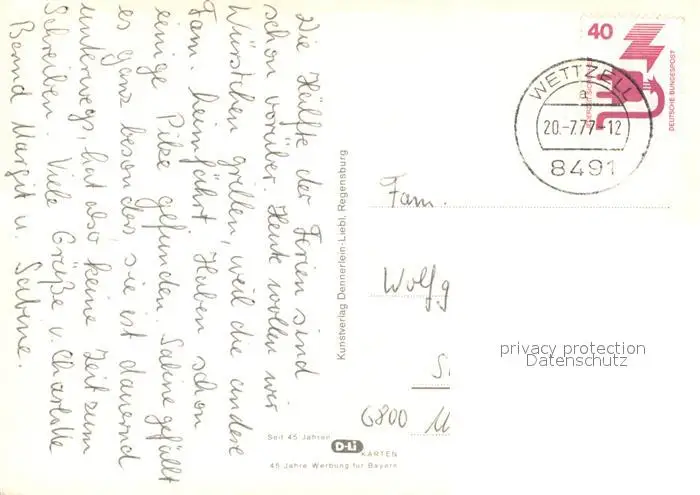 Die Hälfte der Ferien sind
schon vorüber. Heute wollen wir
Würstchen grillen, weil die andere
Fam. heimfährt. Haben schon
einige Pilze gefunden. Sabine gefällt
es ganz besonders, sie ist dauernd
unterwegs, hat also keine Zeit zum
Schreiben. Viele Grüße v. Charlotte
Bernd Margit u. Sabine.
Kunstverlag Dennerlein-Liebl, Regensburg
Seit 45 Jahren
D-Li
KARTEN
45 Jahre Werbung für Bayern
40
DEUTSCHE BUNDESPOST
WETTZELL
a
20.-7.77-12
8491
Fam.
Wolfg
privacy protection
Datenschutz
6800